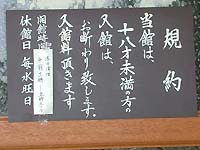 規約
当館は、
十八才未満の方の
入館は、
お断わり致します。
入館料頂きます
開館時間
休館日 毎水旺日